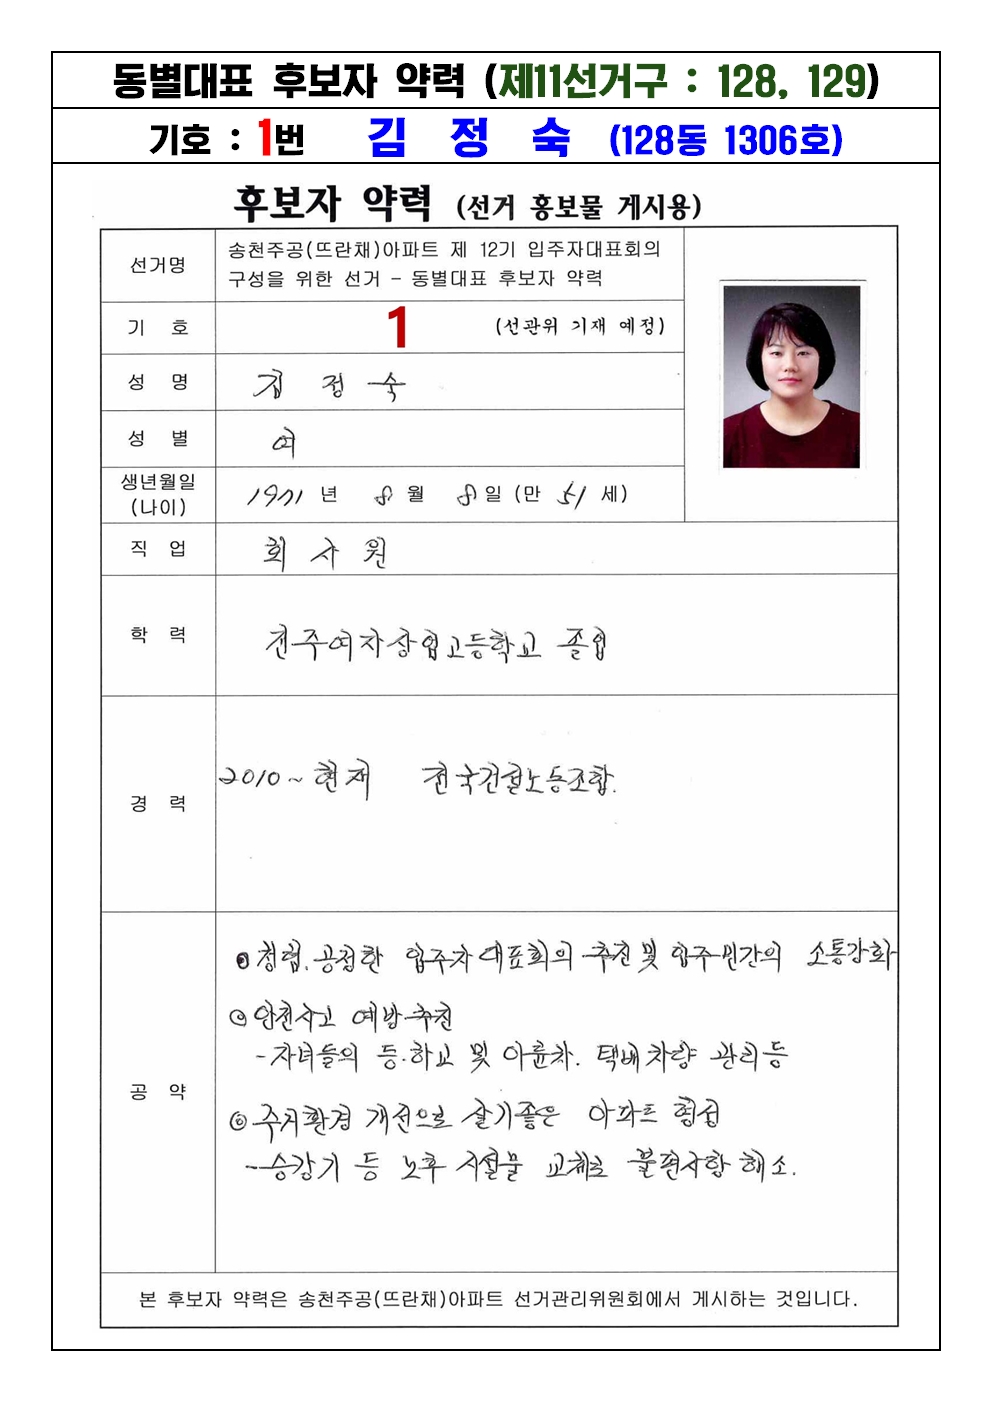 동별대표 후보자 약력 (제11선거구 : 128, 129)
기호 : 1번 김 정 숙 (128동 1306호)
후보자 약력 (선거 홍보물 게시용)
선거명
송천주공(뜨란채)아파트 제 12기 입주자대표회의
구성을 위한 선거 - 동별대표 후보자 약력
기 호 1 (선관위 기재 예정)
성 명 김 정 숙
성 별 여
생년월일
(나이)
1971 년 8 월 8 일 (만 51 세)
직 업 회 사 원
학 력 전주여자상업고등학교 졸업
경 력 2010 ~ 현재 전국건설노동조합.
공 약
◎ 청렴. 공정한 입주자대표회의 추진 및 입주민간의 소통강화
◎ 안전사고 예방추진
- 자녀들의 등·하교 및 이륜차. 택배차량 관리등
◎ 주거환경 개선으로 살기좋은 아파트 형성
- 승강기 등 노후 시설물 교체로 불편사항 해소.
본 후보자 약력은 송천주공(뜨란채)아파트 선거관리위원회에서 게시하는 것입니다.